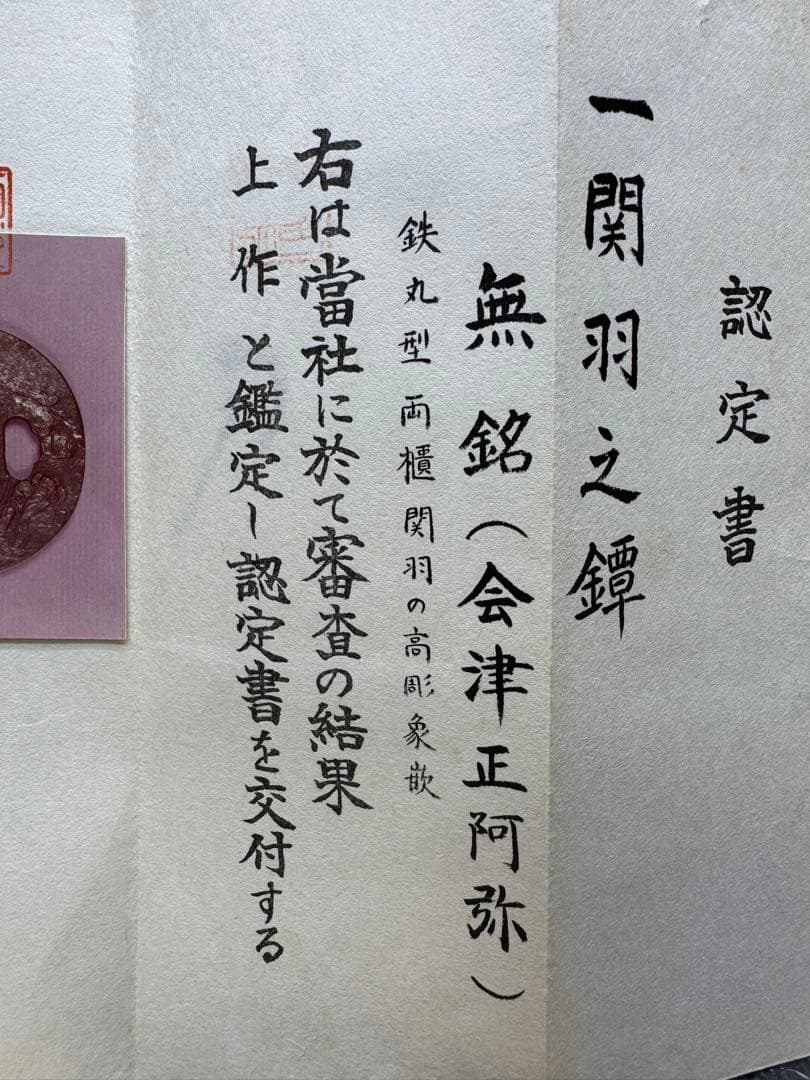 認定書
一関羽之鐔
無銘（会津正阿弥）
鉄丸型両櫃関羽の高彫象嵌
右は當社に於て審査の結果
上作と鑑定し認定書を交付する